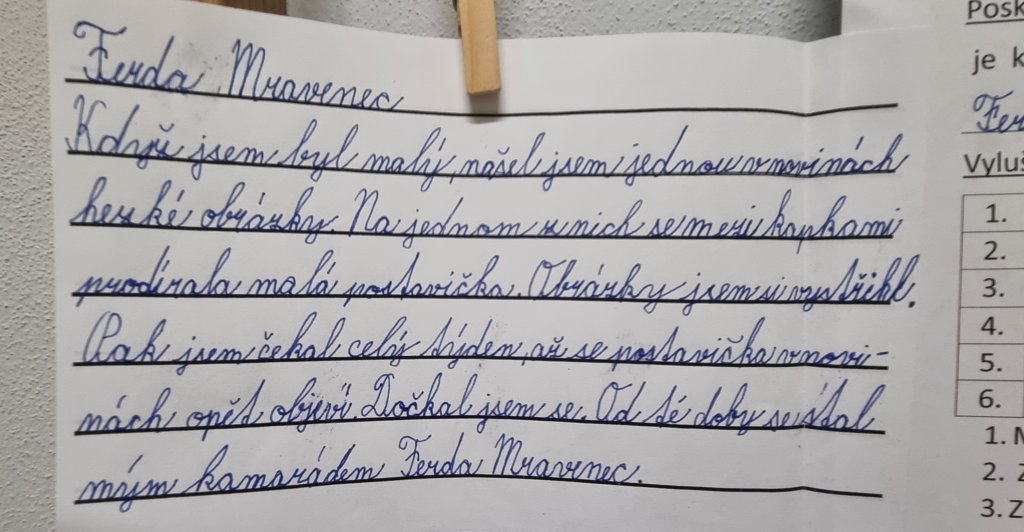 Ferda Mravenec
Když jsem byl malý, našel jsem jednou v novinách
hezké obrázky. Na jednom z nich se mezi kapkami
prodírala malá postavička. Obrázky jsem si vystřihl.
Pak jsem čekal celý týden, až se postavička v novi-
nách opět objeví. Dočkal jsem se. Od té doby se stal
mým kamarádem Ferda Mravenec.
je k
Fer
1.
2.
3.
4.
5.
6.
1. N
2. Z
3. Z